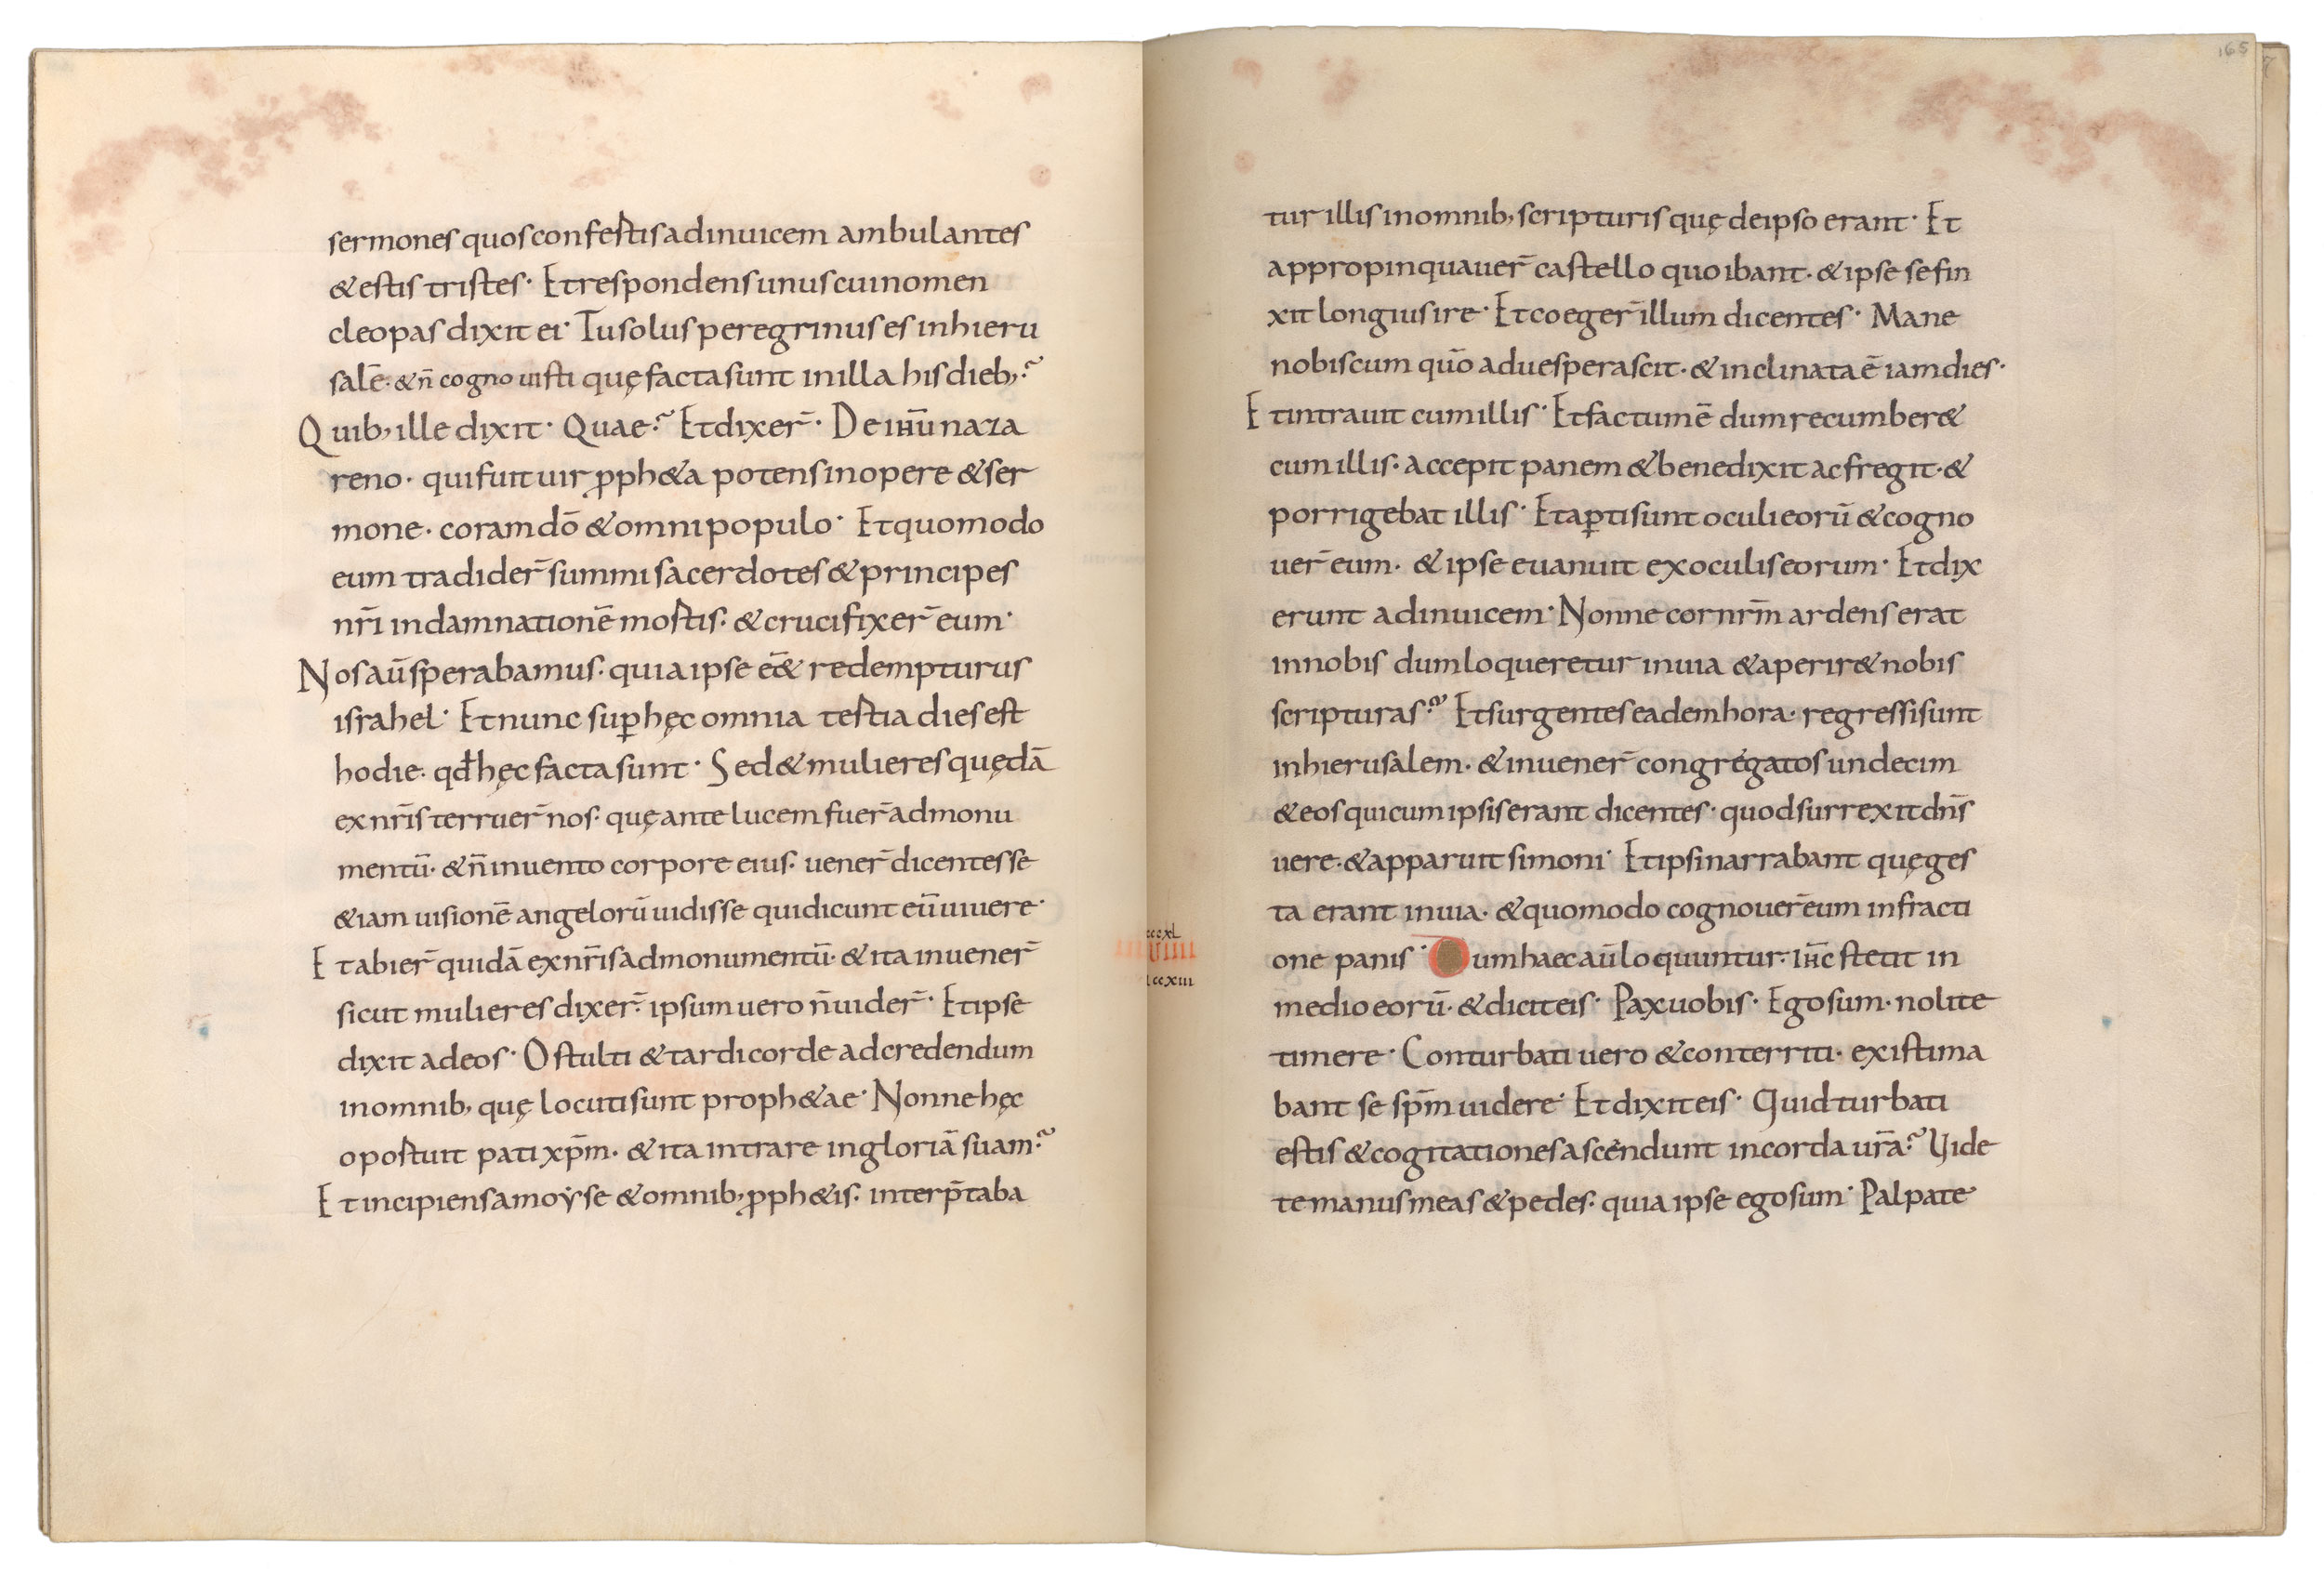 sermones quos confertis adinuicem ambulantes
& estis tristes· Et respondens unus cui nomen
cleopas dixit ei· Tu solus peregrinus es inhieru
salē· & n̄ cognouisti quę facta sunt inilla his dieb;?
Quib; ille dixit· Quae? Et dixer̄· De ih̄u naza
reno· qui fuit uir ꝓph&a potens inopere & ser
mone· coram dō & omni populo· Et quomodo
eum tradider̄ summi sacerdotes & principes
nr̄i indamnationē mortis· & crucifixer̄ eum·
Nos aū sperabamus· quia ipse eē& redempturus
israhel· Et nunc suꝑ hęc omnia tertia dies est
hodie· qđ hęc facta sunt· Sed & mulieres quędā
ex nr̄is terruer̄ nos· quę ante lucem fuer̄ admonu
mentū· & n̄ inuento corpore eius· uener̄ dicentes se
& iam uisionē angelorū uidisse qui dicunt eū uiuere·
Et abier̄ quidā ex nr̄is admonumentū· & ita inuener̄
sicut mulieres dixer̄· ipsum uero n̄ uider̄· Et ipse
dixit adeos· O stulti & tardi corde adcredendum
inomnib; quę locuti sunt proph&ae· Nonne hęc
oportuit pati xp̄m· & ita intrare ingloriā suam?
Et incipiens amoẏse & omnib; ꝓph&is· interp̄taba
165
tur illis inomnib; scripturis quę deipso erant· Et
appropinquauer̄ castello quo ibant· & ipse se fin
xit longius ire· Et coeger̄ illum dicentes· Mane
nobiscum qūo aduesperascit· & inclinata ē iam dies·
Et intrauit cum illis· Et factum ē dum recumber&
cum illis· accepit panem & benedixit ac fregit· &
porrigebat illis· Et aꝑti sunt oculi eorū & cogno
uer̄ eum· & ipse euanuit ex oculis eorum· Et dix
erunt adinuicem· Nonne cor nrm̄ ardens erat
innobis dum loqueretur inuia & aperir& nobis
scripturas? Et surgentes eadem hora· regressi sunt
inhierusalem· & inuener̄ congregatos undecim
& eos qui cum ipsis erant dicentes· quod surrexit dn̄s
uere· & apparuit simoni· Et ipsi narrabant quę ges
ta erant inuia· & quomodo cognouer̄ eum infracti
one panis· Dum haec aū loquuntur· ih̄c stetit in
medio eorū· & dicit eis· Pax uobis· Ego sum· nolite
timere· Conturbati uero & conterriti· existima
bant se sp̄m uidere· Et dixit eis· Quid turbati
estis & cogitationes ascendunt incorda ur̄a? Uide
te manus meas & pedes· quia ipse ego sum· Palpate